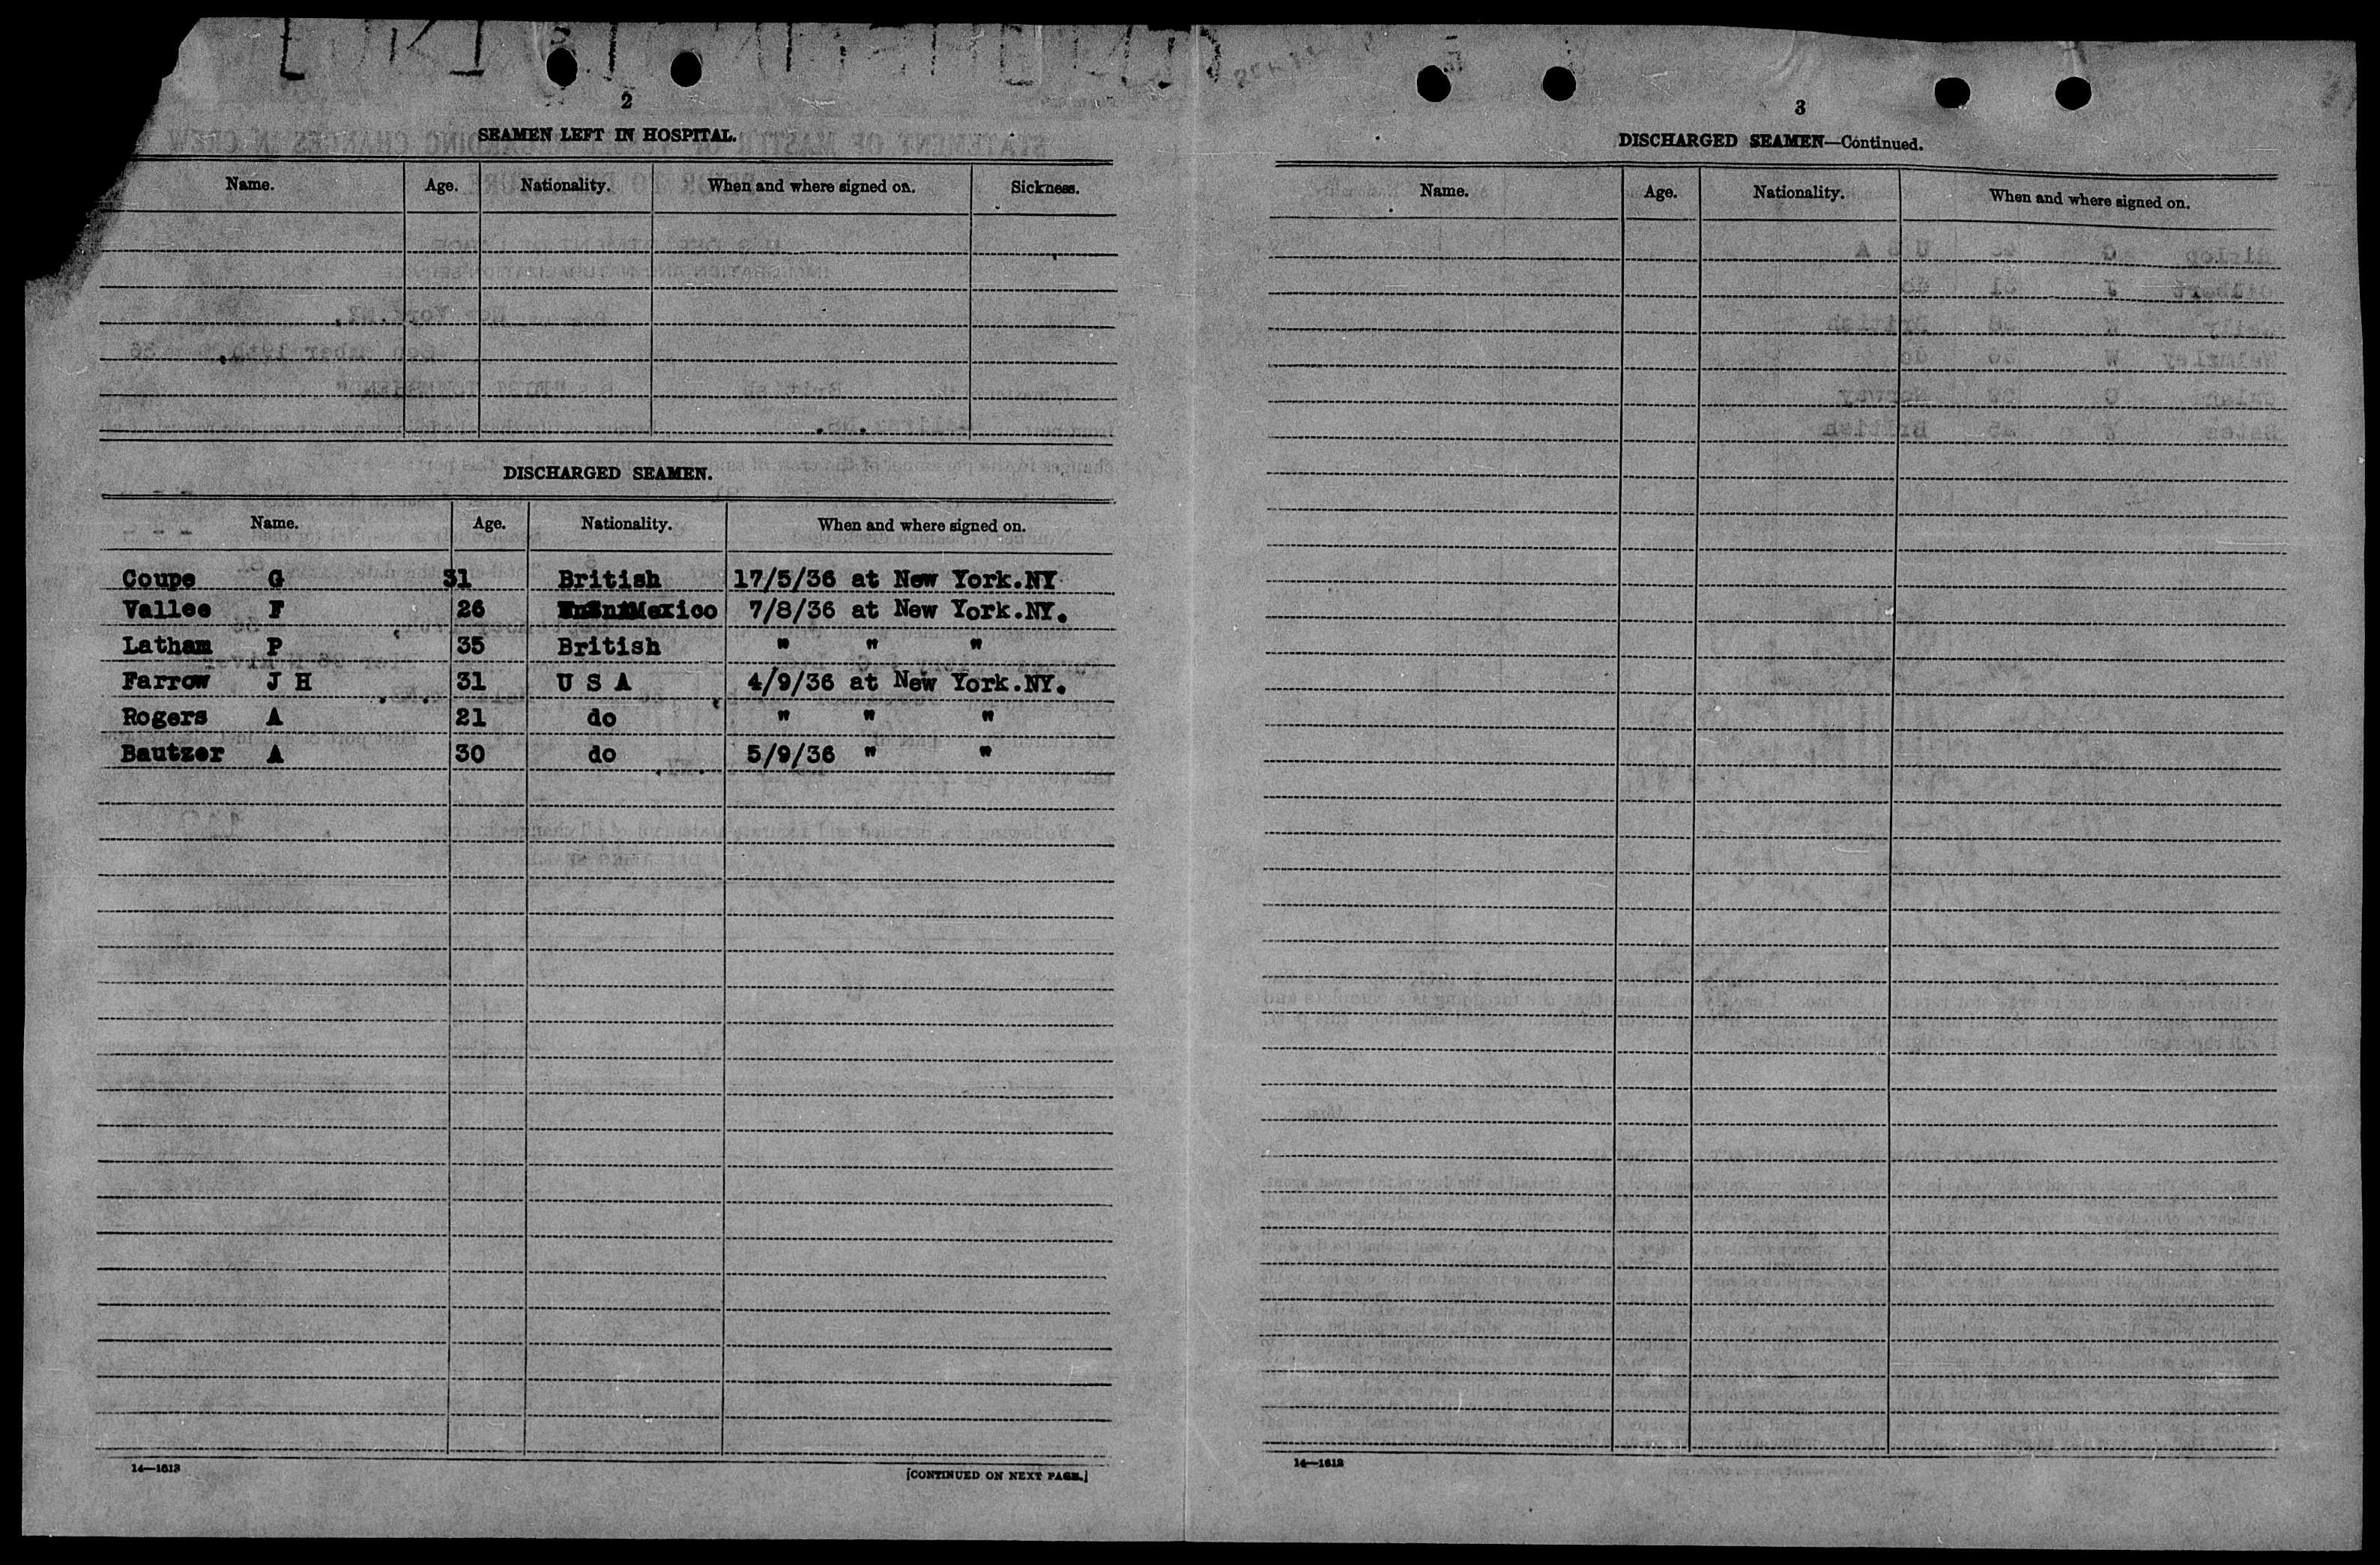 2
SEAMEN LEFT IN HOSPITAL.
Name. Age. Nationality. When and where signed on. Sickness.
DISCHARGED SEAMEN.
Name. Age. Nationality. When and where signed on.
Coupe G 31 British 17/5/36 at New York.NY
Vallee F 26 Mexico 7/8/36 at New York.NY.
Latham P 35 British " " "
Farrow J H 31 U S A 4/9/36 at New York.NY.
Rogers A 21 do " " "
Bautzer A 30 do 5/9/36 " "
14—1613
[CONTINUED ON NEXT PAGE.]
3
DISCHARGED SEAMEN—Continued.
Name. Age. Nationality. When and where signed on.
14—1613